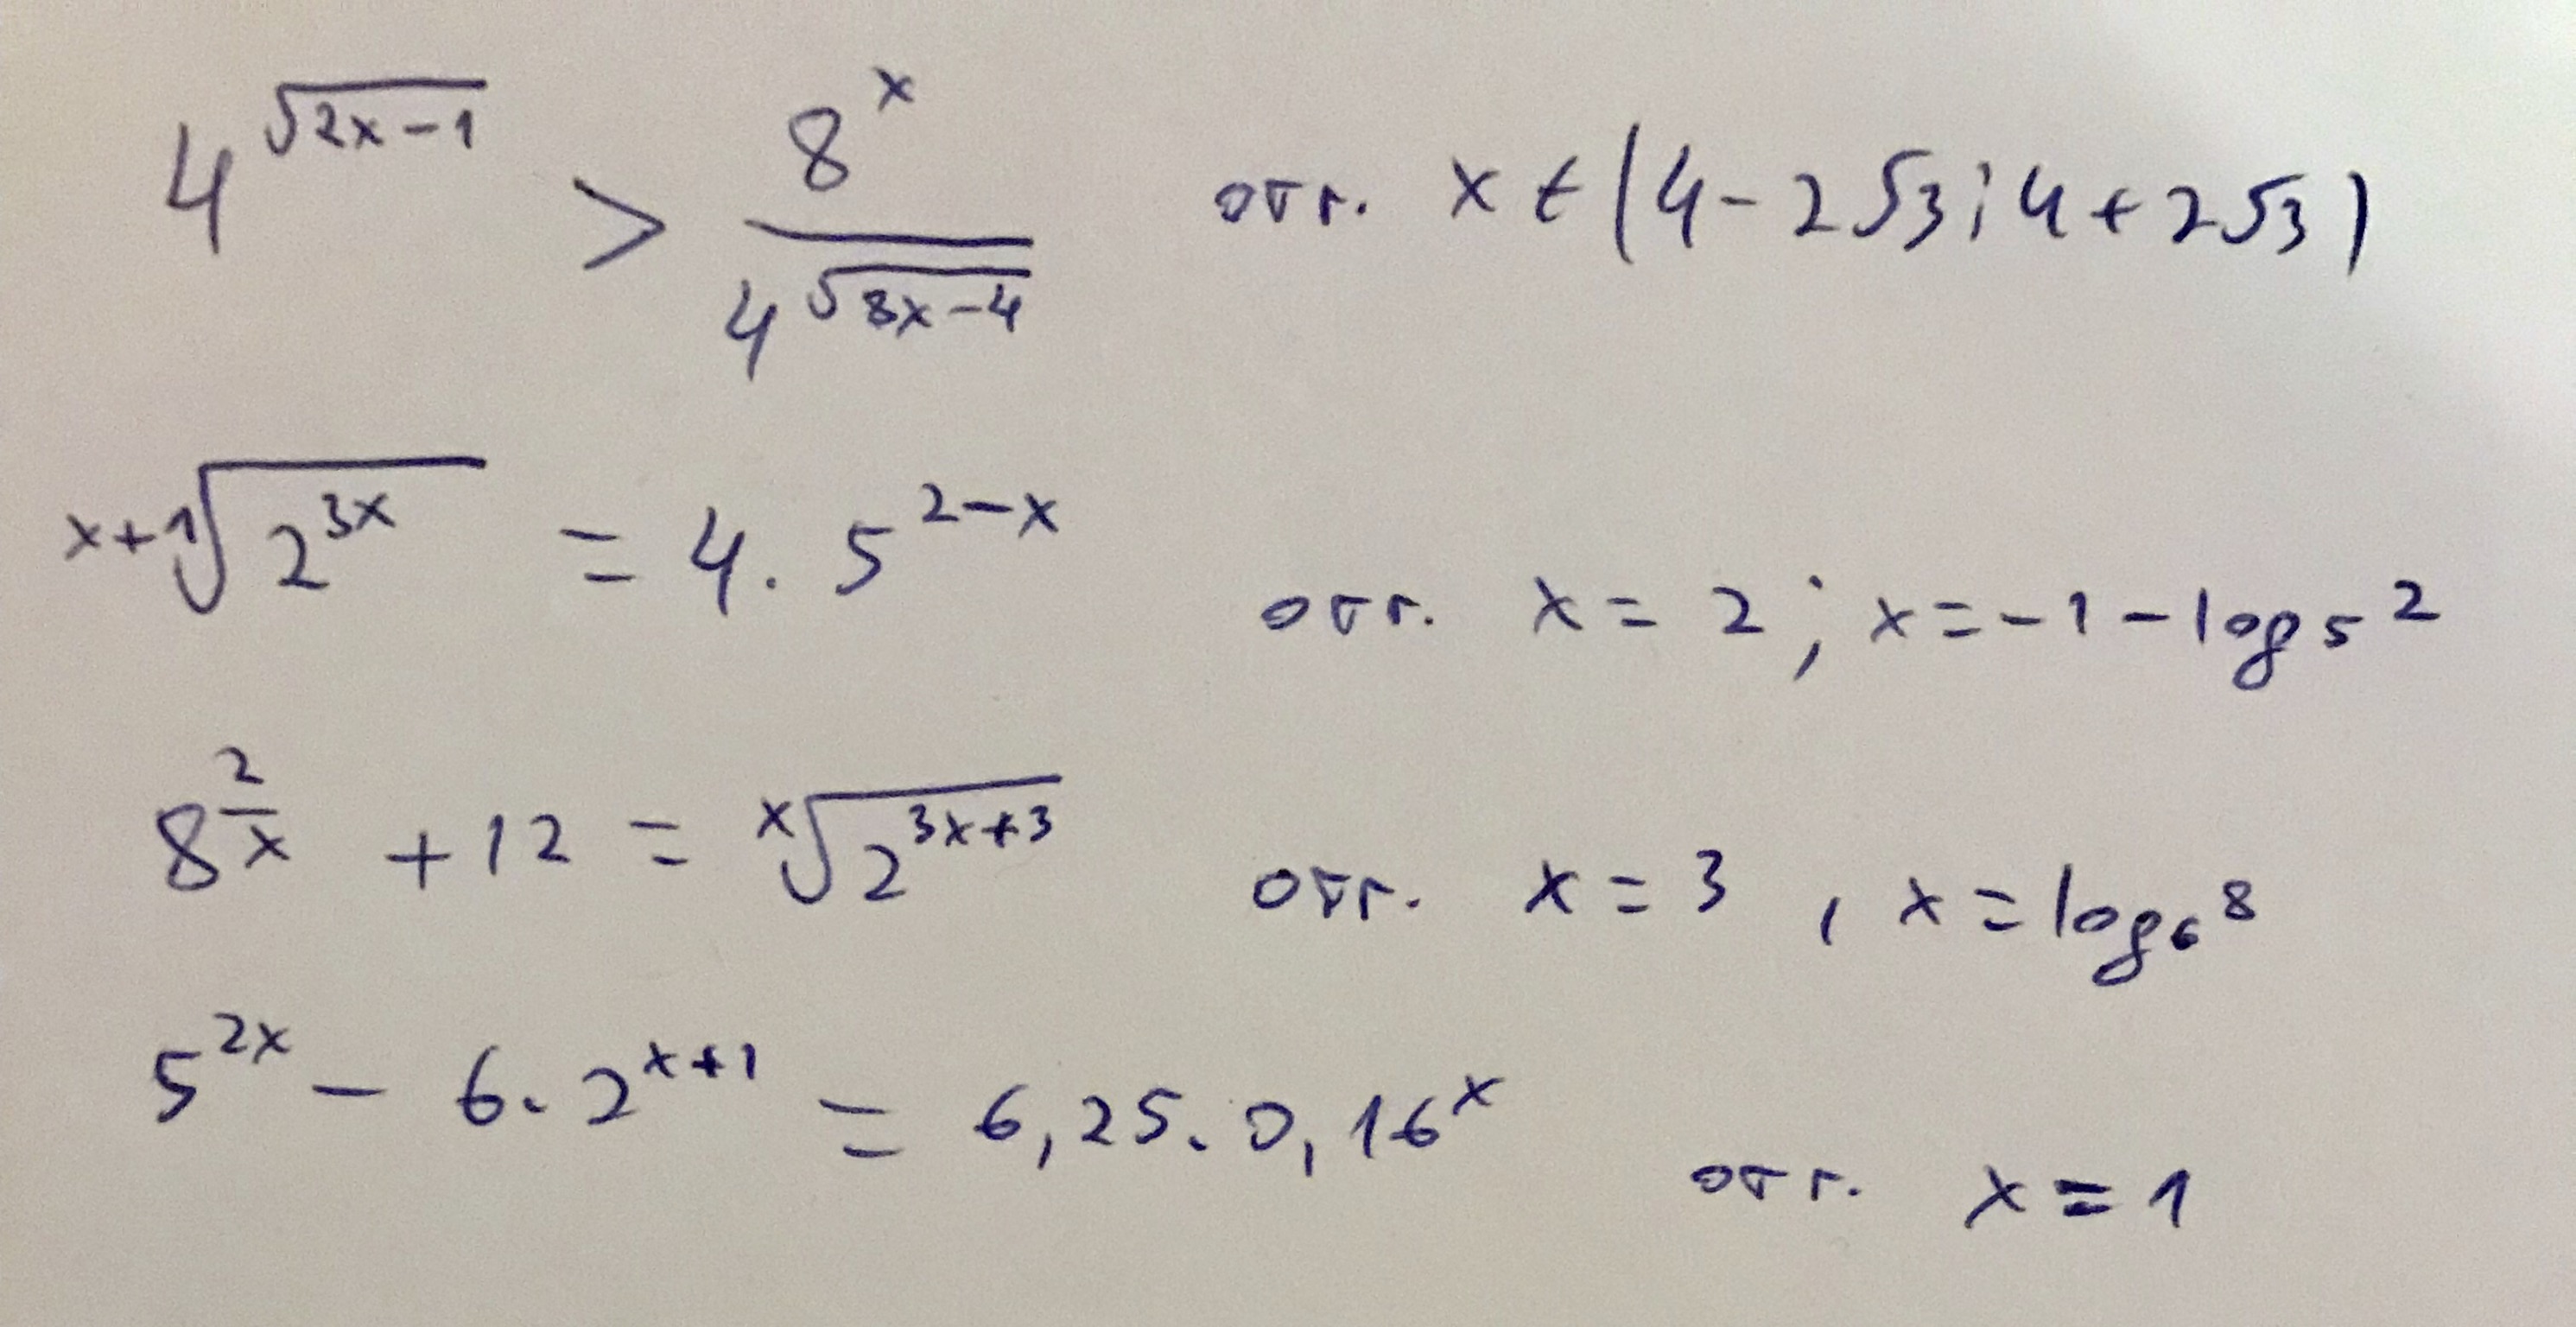 4^{√(2x-1)} > 8^x / 4^{√(8x-4)} отг. x ∈ (4-2√3; 4+2√3)
^{x+1}√(2^{3x}) = 4 . 5^{2-x} отг. x = 2; x = -1 - log_5 2
8^{2/x} + 12 = ^x√(2^{3x+3}) отг. x = 3, x = log_6 8
5^{2x} - 6 . 2^{x+1} = 6,25 . 0,16^x отг. x = 1